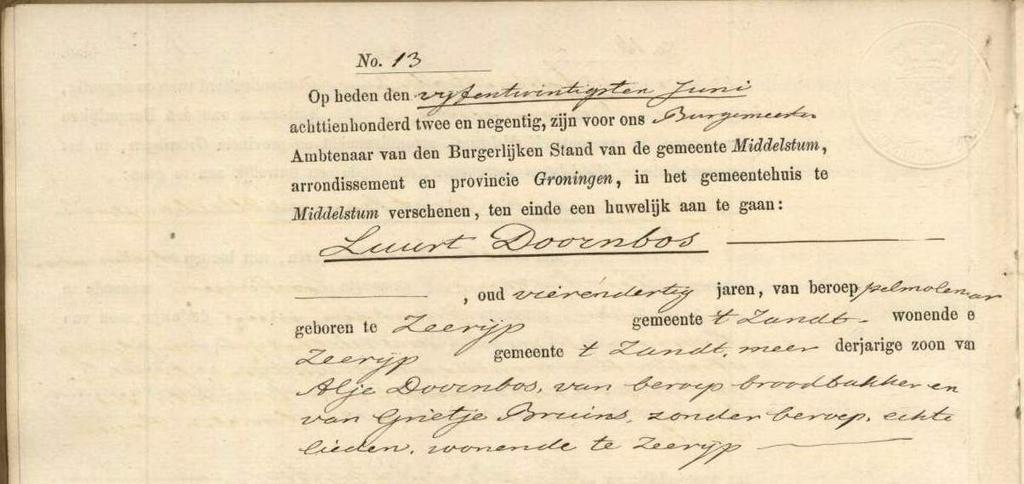 No. 13
Op heden den vijfentwintigsten Juni
achttienhonderd twee en negentig, zijn voor ons Burgemeester
Ambtenaar van den Burgerlijken Stand van de gemeente Middelstum,
arrondissement en provincie Groningen, in het gemeentehuis te
Middelstum verschenen, ten einde een huwelijk aan te gaan:
Luurt Doornbos
, oud vierendertig jaren, van beroep pelmolenaar
geboren te Zeerijp gemeente 't Zandt wonende e
Zeerijp gemeente 't Zandt, meer derjarige zoon van
Alje Doornbos, van beroep broodbakker en
van Grietje Bruins, zonder beroep, echte
lieden, wonende te Zeerijp